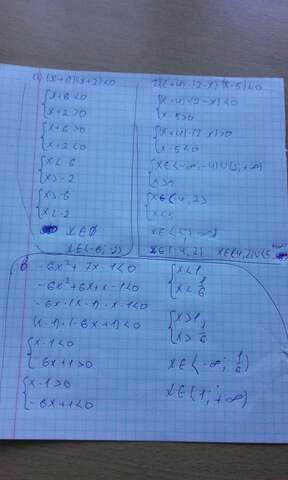 а) (x+6)(x+2)<0
{x+6<0
x+2>0
{x+6>0
x+2<0
{x<-6
x>-2
{x>-6
x<-2
x∈∅
x∈(-6; 2)
(x+4)·(2-x)(x-5)<0
{(x+4)·(2-x)<0
x-5>0
{(x+4)·(2-x)>0
x-5<0
x>5
{x∈(-4, 2)
x<5
-6x²+7x-1<0
-6x²+6x+x-1<0
-6x·(x-1)·x-1<0
(x-1)·(-6x+1)<0
{x-1<0
6x+1>0
{x-1>0
-6x+1<0
{x<1
x<1/6
{x>1
x>1/6
x∈(-∞; 1/6)
x∈(1; +∞)